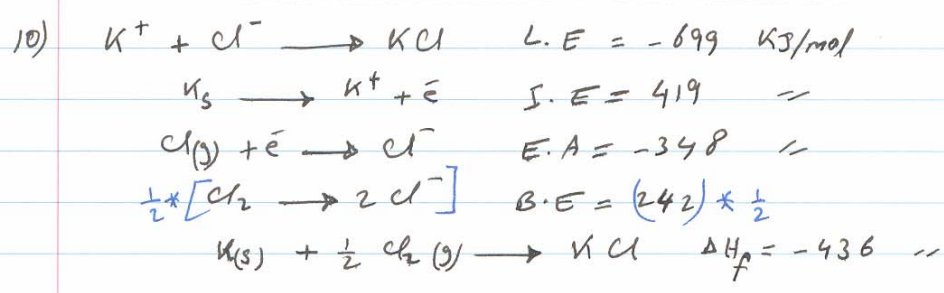 10) K⁺ + Cl⁻ ⟶ KCl L.E = -699 KJ/mol
Ks ⟶ K⁺ + ē I.E = 419 〃
Cl(g) + ē ⟶ Cl⁻ E.A = -348 〃
½*[Cl₂ ⟶ 2 Cl⁻] B.E = (242) * ½
K(s) + ½ Cl₂ (g) ⟶ KCl ΔHf = -436 〃